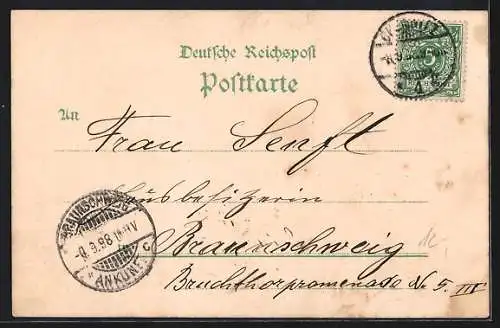 Deutsche Reichspost
Postkarte
An
5
Frau Senft
Hausbesitzerin
Braunschweig
Bruchthorpromenade No. 5. III
BRAUNSCHWEIG
9.98
* ANKUNFT C